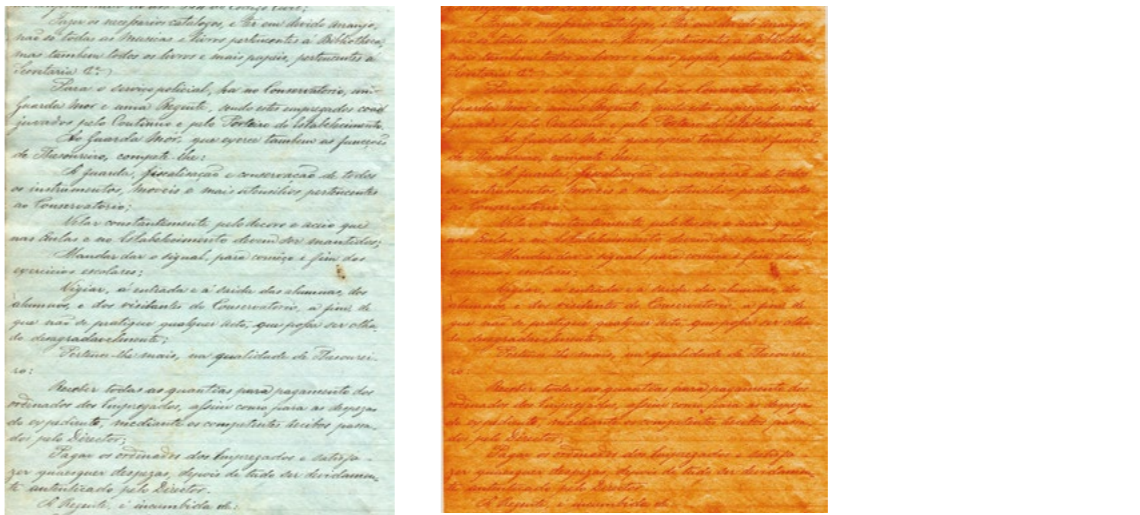 Fazer os necessarios catalogos, e ter em devido arranjo,
não só todas as musicas e livros pertencentes á Bibliotheca,
mas tambem todos os livros e mais papeis, pertencentes á
Secretaria &ª
Para o serviço policial, ha no Conservatorio, um
Guarda Mor e uma Regente, sendo estes empregados coad
juvados pelo Continuo e pelo Porteiro do Estabelecimento.
Ao Guarda Mór, que exerce tambem as funcções
de Thesoureiro, compete-lhe:
A guarda, fiscalisação e conservação de todos
os instrumentos, moveis e mais utensilios pertencentes
ao Conservatorio;
Velar constantemente pelo decoro e aceio que
nas Aulas e no Estabelecimento devem ser mantidos;
Mandar dar o signal, para começo e fim dos
exercicios escolares;
Vigiar, á entrada e á saida das alumnas, dos
alumnos, e dos visitantes do Conservatorio, a fim de
que não se pratique qualquer acto, que possa ser olha-
do desagradavelmente;
Pertence-lhe mais, na qualidade de Thesourei-
ro:
Receber todas as quantias para pagamento dos
ordenados dos Empregados, assim como para as despezas
do expediente, mediante os competentes recibos passa-
dos pelo Director;
Pagar os ordenados dos Empregados e satisfa-
zer quaesquer despezas, depois de tudo ser devidamen-
te autenticado pelo Director.
A Regente, é incumbida de: